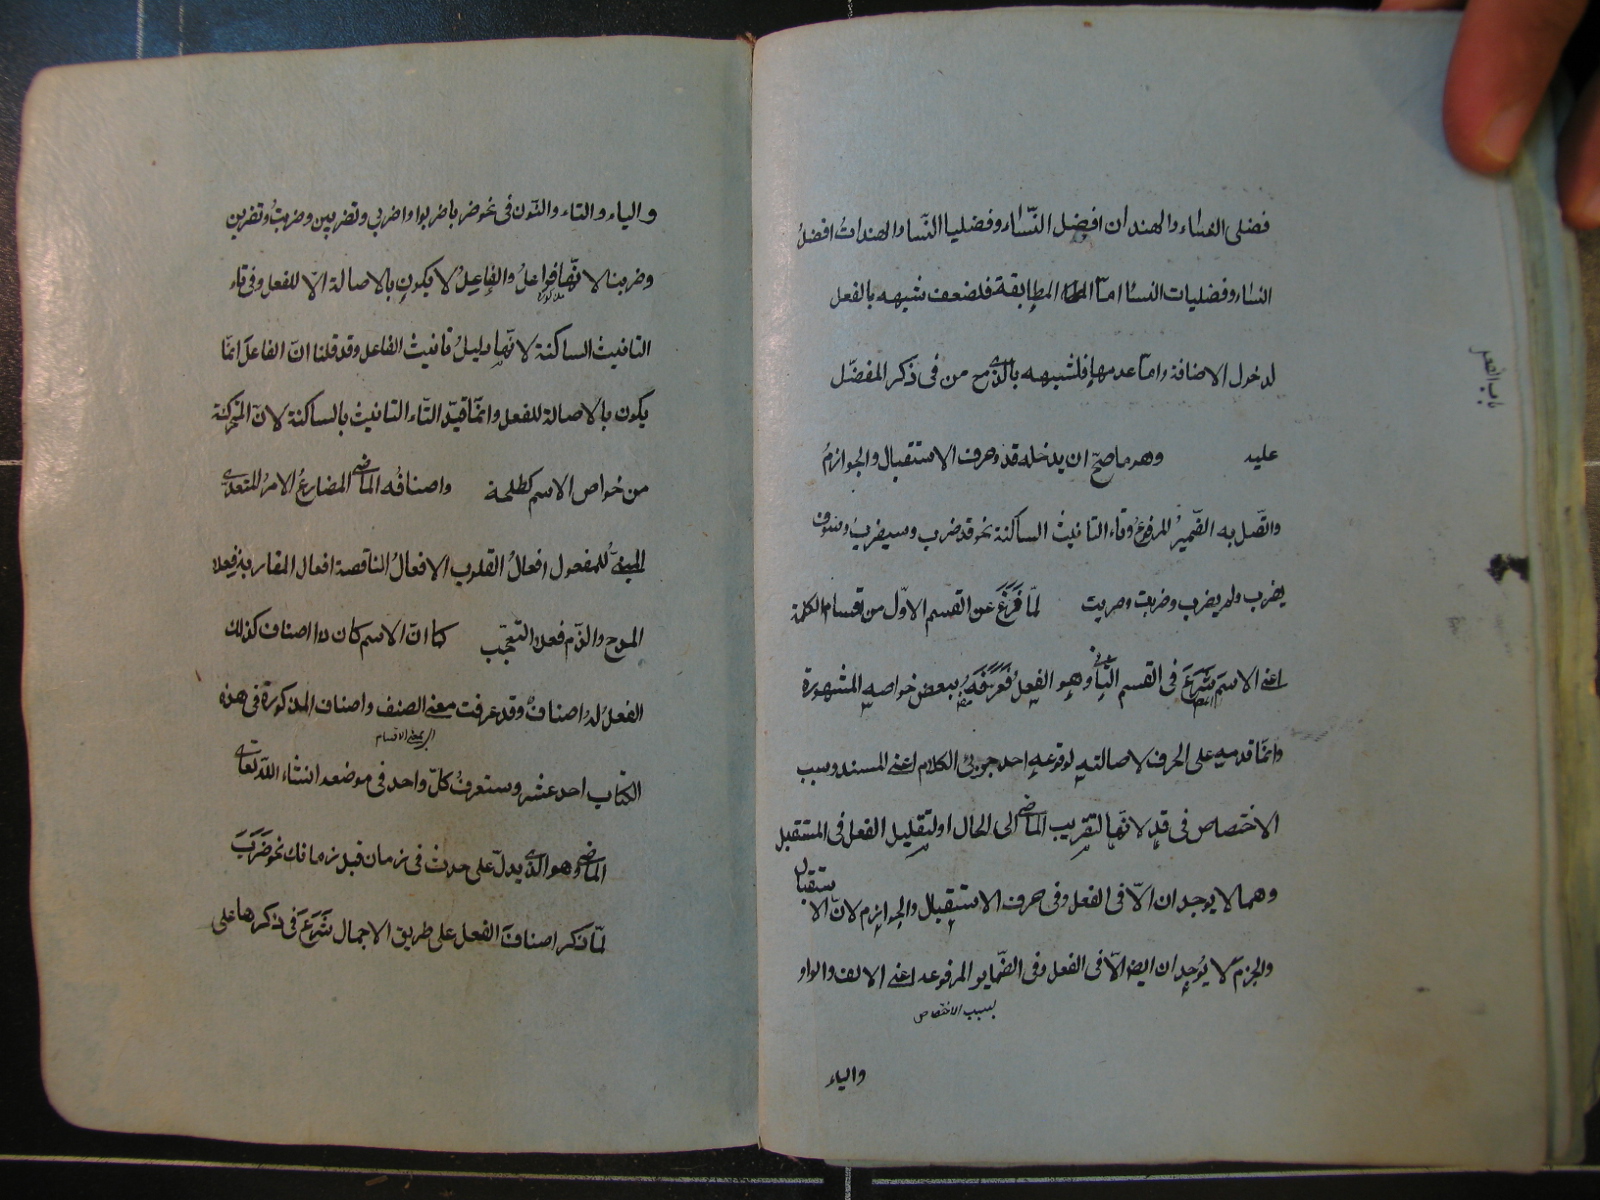 فضلى النساء والهندان افضل النّساء وفضليا النّساء والهندات افضلُ
النساء وفضليات النساء امّا المطابقة فلضعف شبهه بالفعل
لدخول الاضافة وامّا عدمها فلشبهه بالذى مع من فى ذكر المفضّل
عليه وهو ما صحّ ان يدخله قد وحرف الاستقبال والجوازمُ
باب الفعل
واتّصل به الضّميرُ المرفوعُ وتاء التانيث الساكنة نحو قد ضرب وسيضربُ وسوف
يضرب ولم يضرب وضربت وضربت لمّا فَرَغَ عن القسم الاوّل من اقسام الكلمة
اعنى الاسم شَرَعَ فى القسم الثانى وهو الفعلُ فَعَرَّفَهُ ببعض خواصه المشهورة
وانّما قدمه على الحرف لاصالته لوقوعه احد جزئى الكلام اعنى المسند وسبب
الاختصاص فى قد لانّها لتقريب الماضى الى الحال او لتقليل الفعل فى المستقبل
وهما لا يوجدان الاّ فى الفعل وفى حرف الاستقبال والجوازم لانّ الاستقبال
والجزم لا يُوجدان ايضا الاّ فى الفعل وفى الضّماير المرفوعة اعنى الالف والواو
بسبب الاختصاص
والياء
والياء والتاء والنّون فى نحو ضربا ضربوا واضربى وتضربين وضربتُ وتضربن
وضربنا لانّها فواعلُ والفاعلُ لا يكون بالاصالة الاّ للفعل وفى تاء
التانيث الساكنة لانّها دليلُ تانيث الفاعل وقد قلنا انّ الفاعلَ انّما
يكون بالاصالة للفعل وانّما قيّد التّاء التانيث بالساكنة لانّ المتحركة
من خواص الاسم كطلحة واصنافُه الماضى المضارعُ الامرُ المتعدى
المبنىُّ للمفعول افعالُ القلوب الافعالُ الناقصة افعال المقاربة فعلا
المدح والذّم فعلا التعجّب كما انّ الاسم كان له اصناف كذلك
الفعلُ لهُ اصنافٌ وقد عرفت معنى الصنف واصناف المذكورة فى هذه
اى بمعنى الاقسام
الكتاب احد عشر وستعرفُ كلّ واحد فى موضعه انشاء اللّه تعالى
الماضى وهو الذى يدلّ على حدث فى زمان قبل زمانك نحو ضَرَبَ
لمّا ذكر اصنافَ الفعل على طريق الاجمال شَرَعَ فى ذكرها على